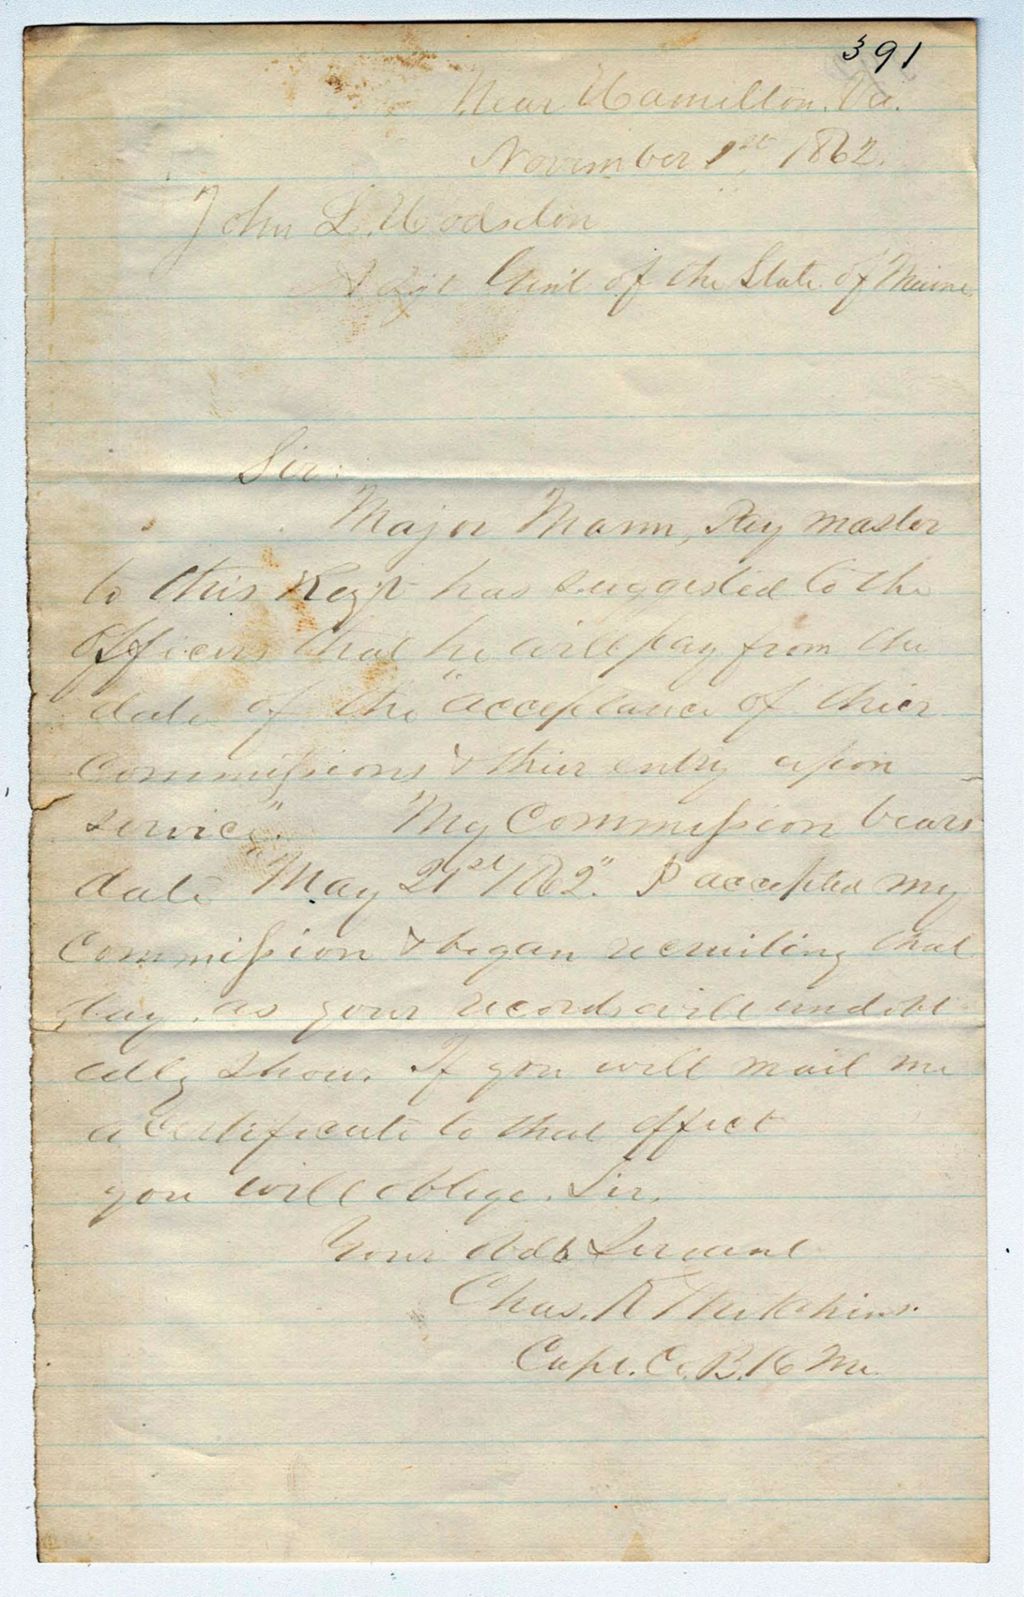 391
Near Hamilton. Va.
November 1st, 1862.
John L. Hodsdon
Adjt Gen'l of the State of Maine
Sir:
Major Mann, Pay master
to this Regt has suggested to the
Officers that he will pay from the
date of the "acceptance of thier
Commissions & thier entry upon
service". My Commission bears
date "May 21st 1862". I accepted my
Commission & began recruiting that
day, as your records will undobt
edly show. If you will mail me
a certificate to that effect
you will oblige. Sir.
Your Obdt Servant
Chas. K Hutchins.
Capt. Co. B. 16 Me.